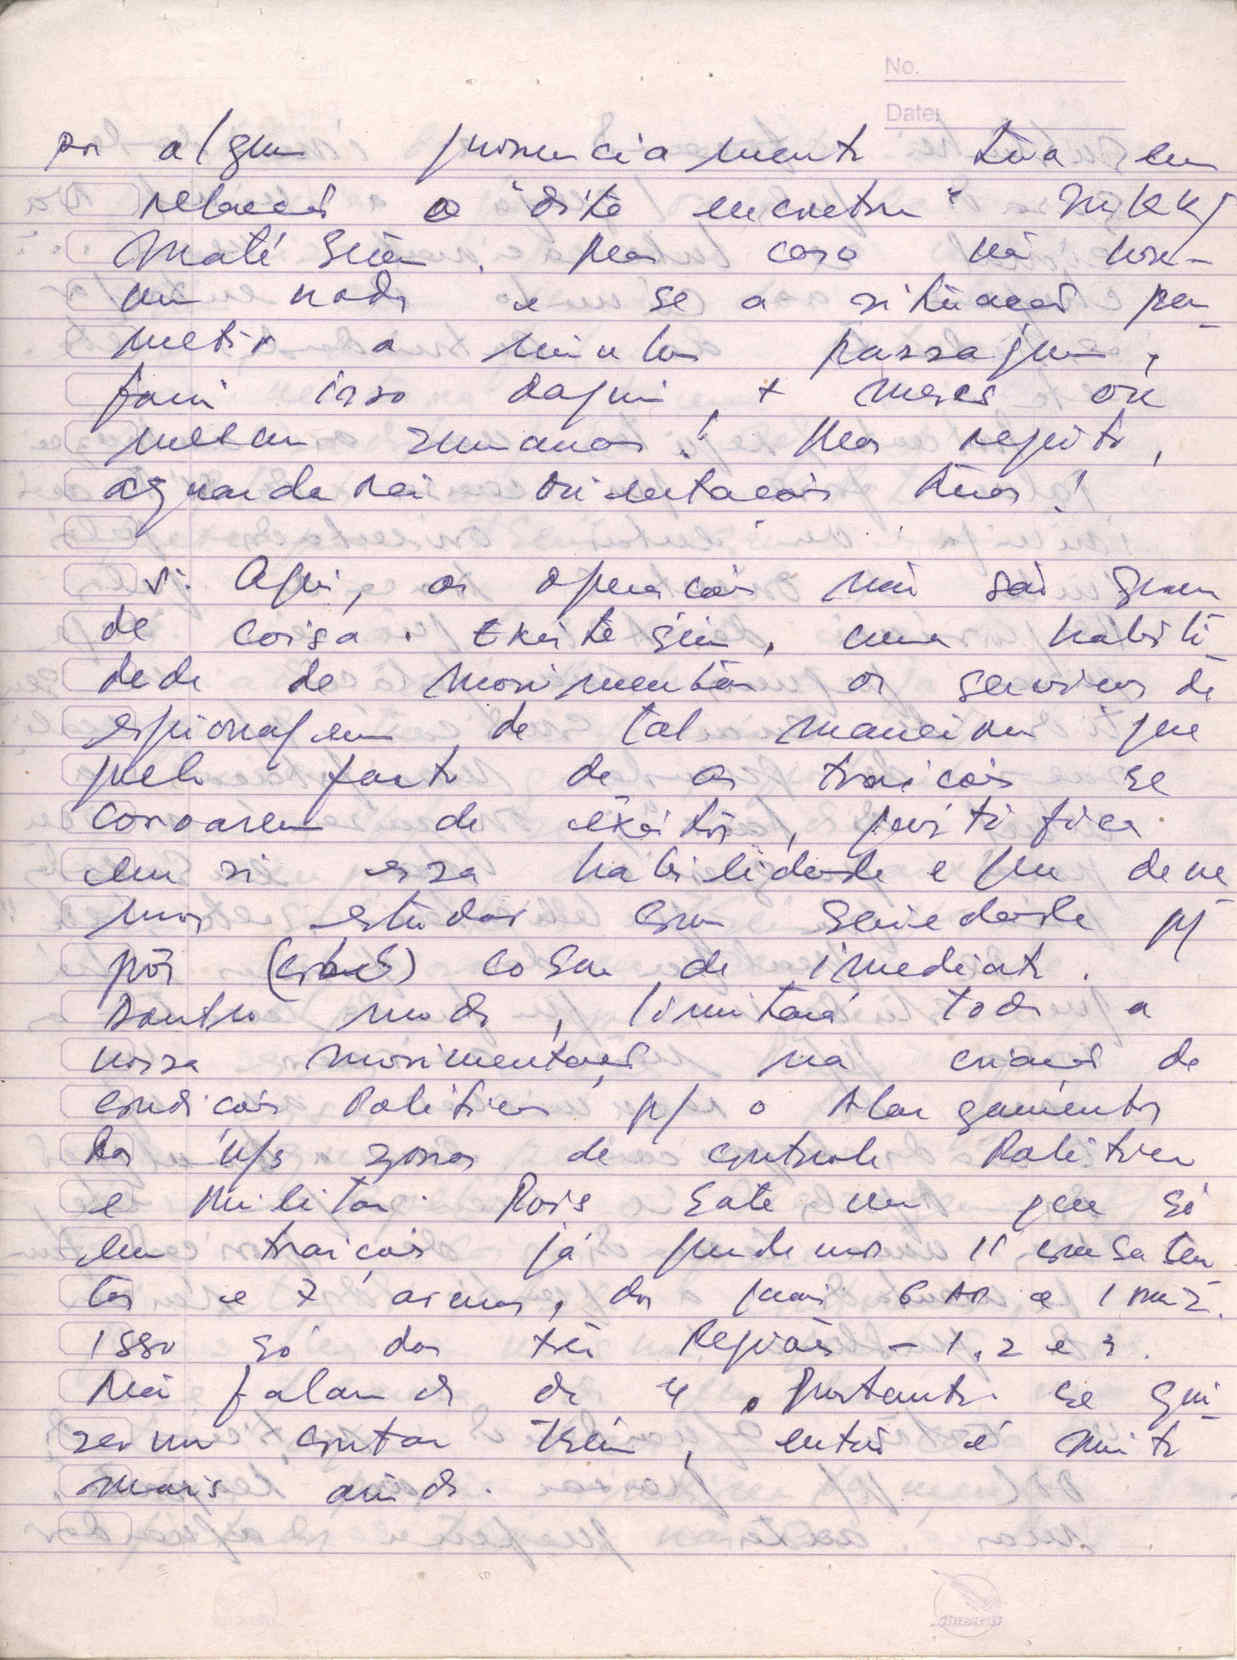 No.
Date:
por algum pronunciamento tua em
relação o "dito encontro"
Maté Sião. Mas caso não hou-
ver nada e se a situação per-
metir a minha passagem,
farei isso daqui, + meses ou
mesmo semanas! Mas repito,
aguardarei orientações tuas!
5: Aqui, as operações não são gran
de coisa. Existe sim, uma habili-
dade de movimentar os serviços de
espionagem de tal maneira que
pelo facto de as traições se
coroarem de êxitos, justifica
em si essa habilidade e que deve
mos estudar com seriedade p/
pôr cobro de imediato.
Doutro modo, limitará toda a
nossa movimentação na criação de
condições Políticas p/ o Alargamento
das n/s zonas de controle Politico
e Militar. Pois Sate um que só
em traições já perdemos 11 combaten
tes e 7 armas, das quais 6 AR e 1
Isso só das três Regiões - 1, 2 e 3.
Não falando da 4. Portanto se qui
sermos contar tbém, então é muito
mais ainda.